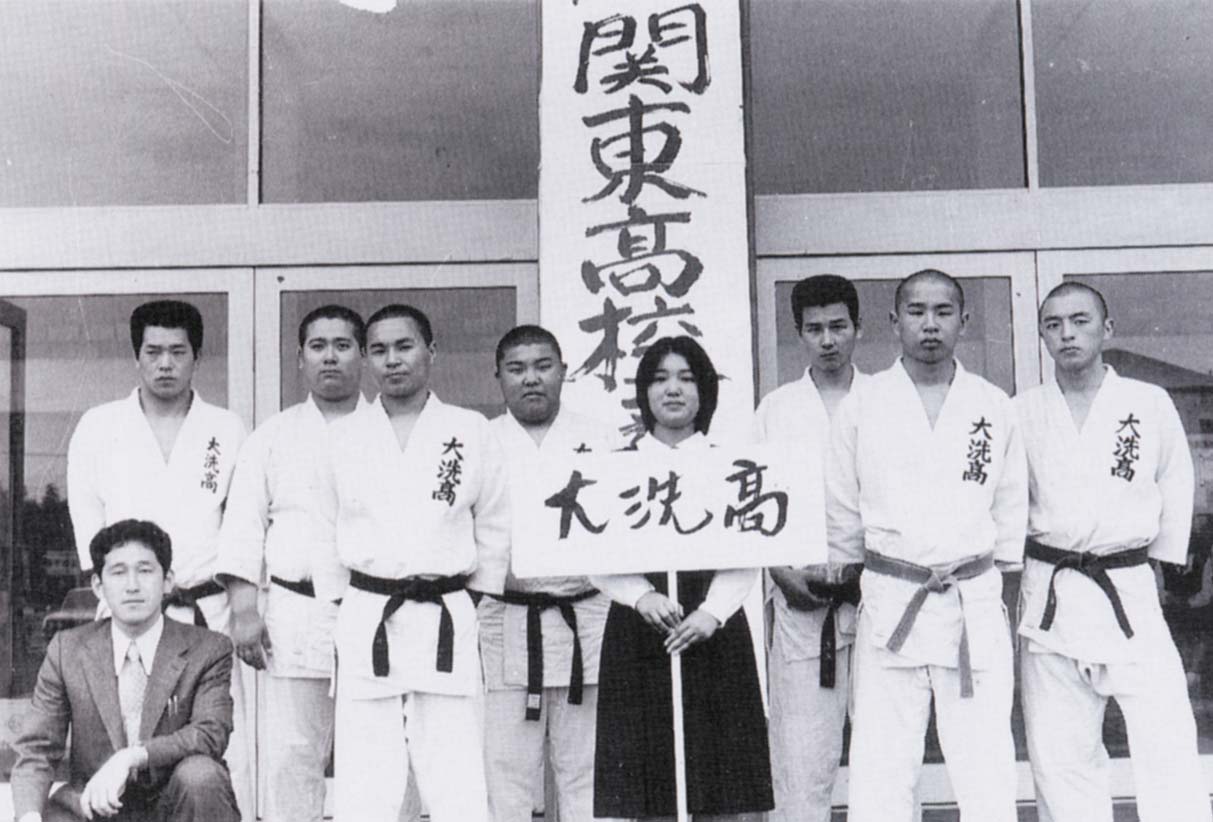 関東高校
大洗高
大洗高
大洗高
大洗高
大洗高